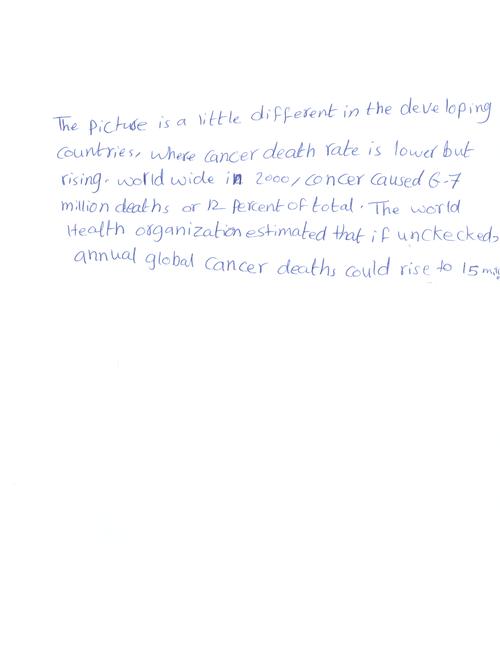 The picture is a little different in the developing
countries, where cancer death rate is lower but
rising. world wide in 2000, concer caused 6-7
million deaths or 12 percent of total. The world
Health organization estimated that if unckecked,
annual global cancer deaths could rise to 15